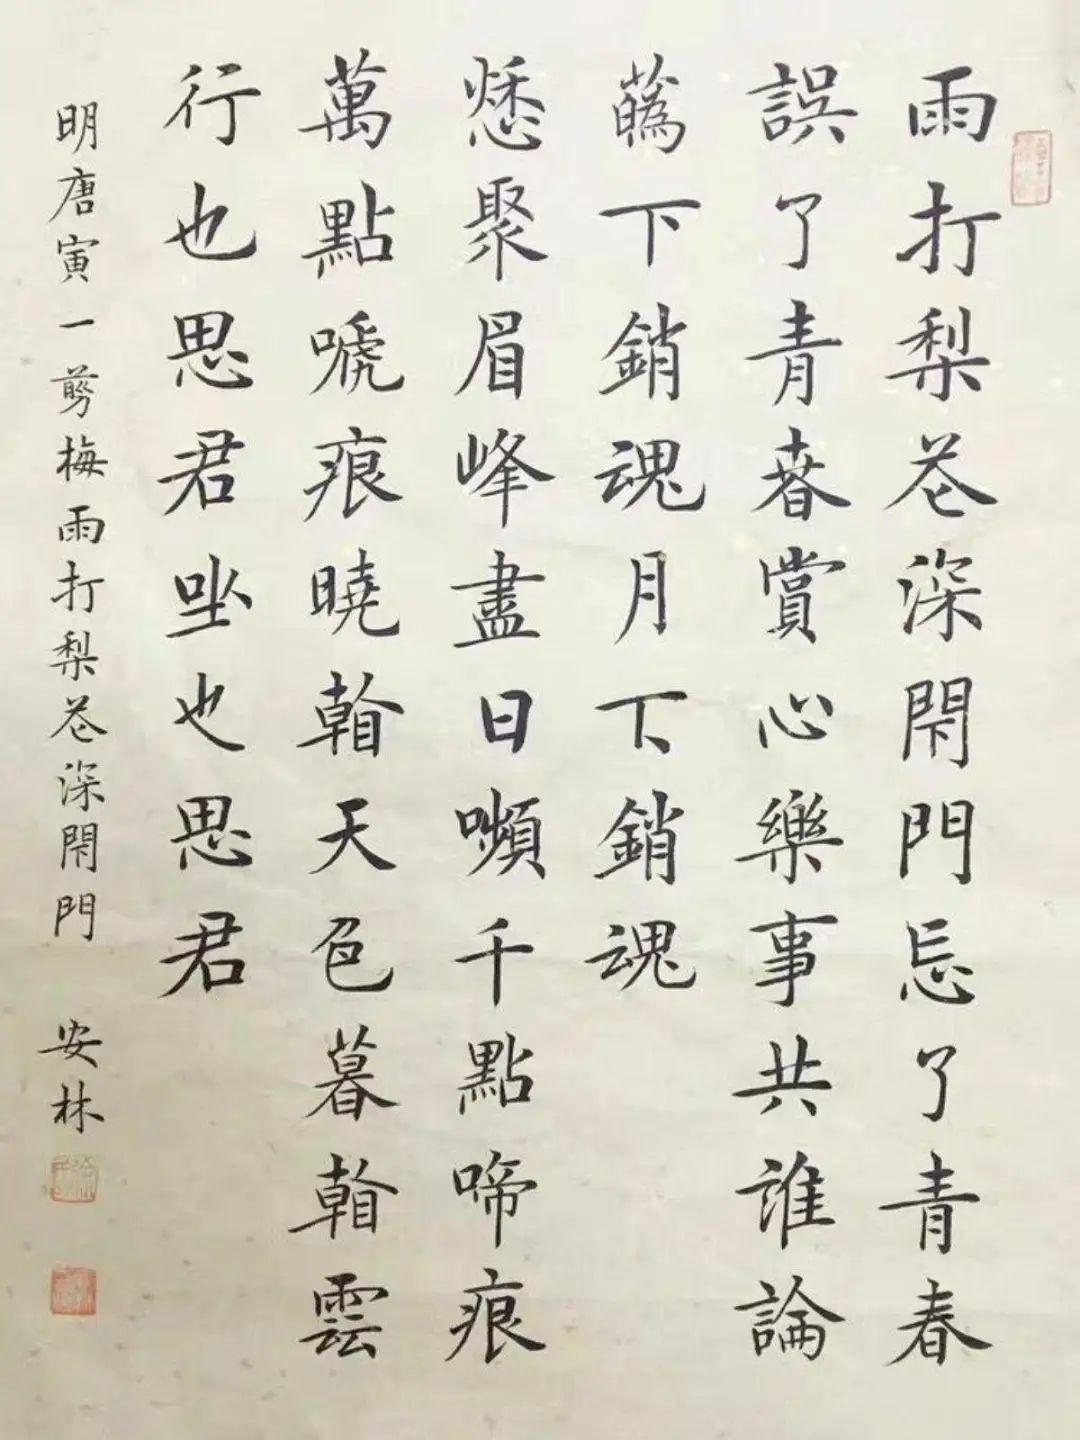 雨打梨芲深閇門忘了青春
誤了青春賞心樂事共誰論
蘤下銷魂月下銷魂
愁聚眉峰盡日嚬千點啼痕
萬點嗁痕曉看天色暮看雲
行也思君坐也思君
明唐寅一剪梅雨打梨芲深閇門 安林